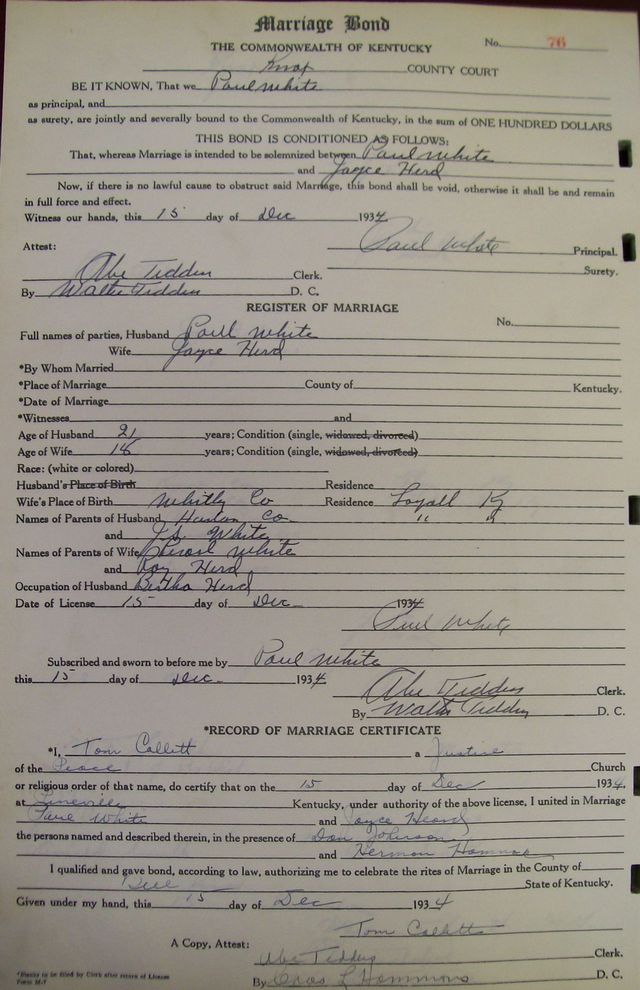 Marriage Bond
THE COMMONWEALTH OF KENTUCKY No. 76
Knox COUNTY COURT
BE IT KNOWN, That we Paul White
as principal, and
as surety, are jointly and severally bound to the Commonwealth of Kentucky, in the sum of ONE HUNDRED DOLLARS
THIS BOND IS CONDITIONED AS FOLLOWS:
That, whereas Marriage is intended to be solemnized between Paul White
and Jayce Herd
Now, if there is no lawful cause to obstruct said Marriage, this bond shall be void, otherwise it shall be and remain
in full force and effect.
Witness our hands, this 15 day of Dec 1934
Paul White Principal.
Attest:
Surety.
Abe Tedders Clerk.
By Walter Tedders D. C.
REGISTER OF MARRIAGE
No.
Full names of parties, Husband Paul White
Wife Jayce Herd
*By Whom Married
*Place of Marriage County of Kentucky.
*Date of Marriage
*Witnesses and
Age of Husband 21 years; Condition (single, widowed, divorced)
Age of Wife 18 years; Condition (single, widowed, divorced)
Race: (white or colored)
Husband's Place of Birth Residence
Wife's Place of Birth Whitly Co Residence Loyall Ky
Names of Parents of Husband Harlan Co " "
and J.S. White
Names of Parents of Wife White
and Roy Herd
Occupation of Husband Bertha Herd
Date of License 15 day of Dec 1934
Paul White
Subscribed and sworn to before me by Paul White
this 15 day of Dec. 1934
Abe Tedders Clerk.
By Walter Tedders D. C.
*RECORD OF MARRIAGE CERTIFICATE
*I, Tom Collett a Justice
of the Peace Church
or religious order of that name, do certify that on the 15 day of Dec 1934,
at Pineville Kentucky, under authority of the above license, I united in Marriage
Paul White and Joyce Heard
the persons named and described therein, in the presence of Don Johnson
and Herman
I qualified and gave bond, according to law, authorizing me to celebrate the rites of Marriage in the County of
Bell State of Kentucky.
Given under my hand, this 15 day of Dec 1934
Tom Collett
A Copy, Attest:
Abe Tedders Clerk.
By L Hammons D. C.
*Blanks to be filed by Clerk after return of License
Form M-7